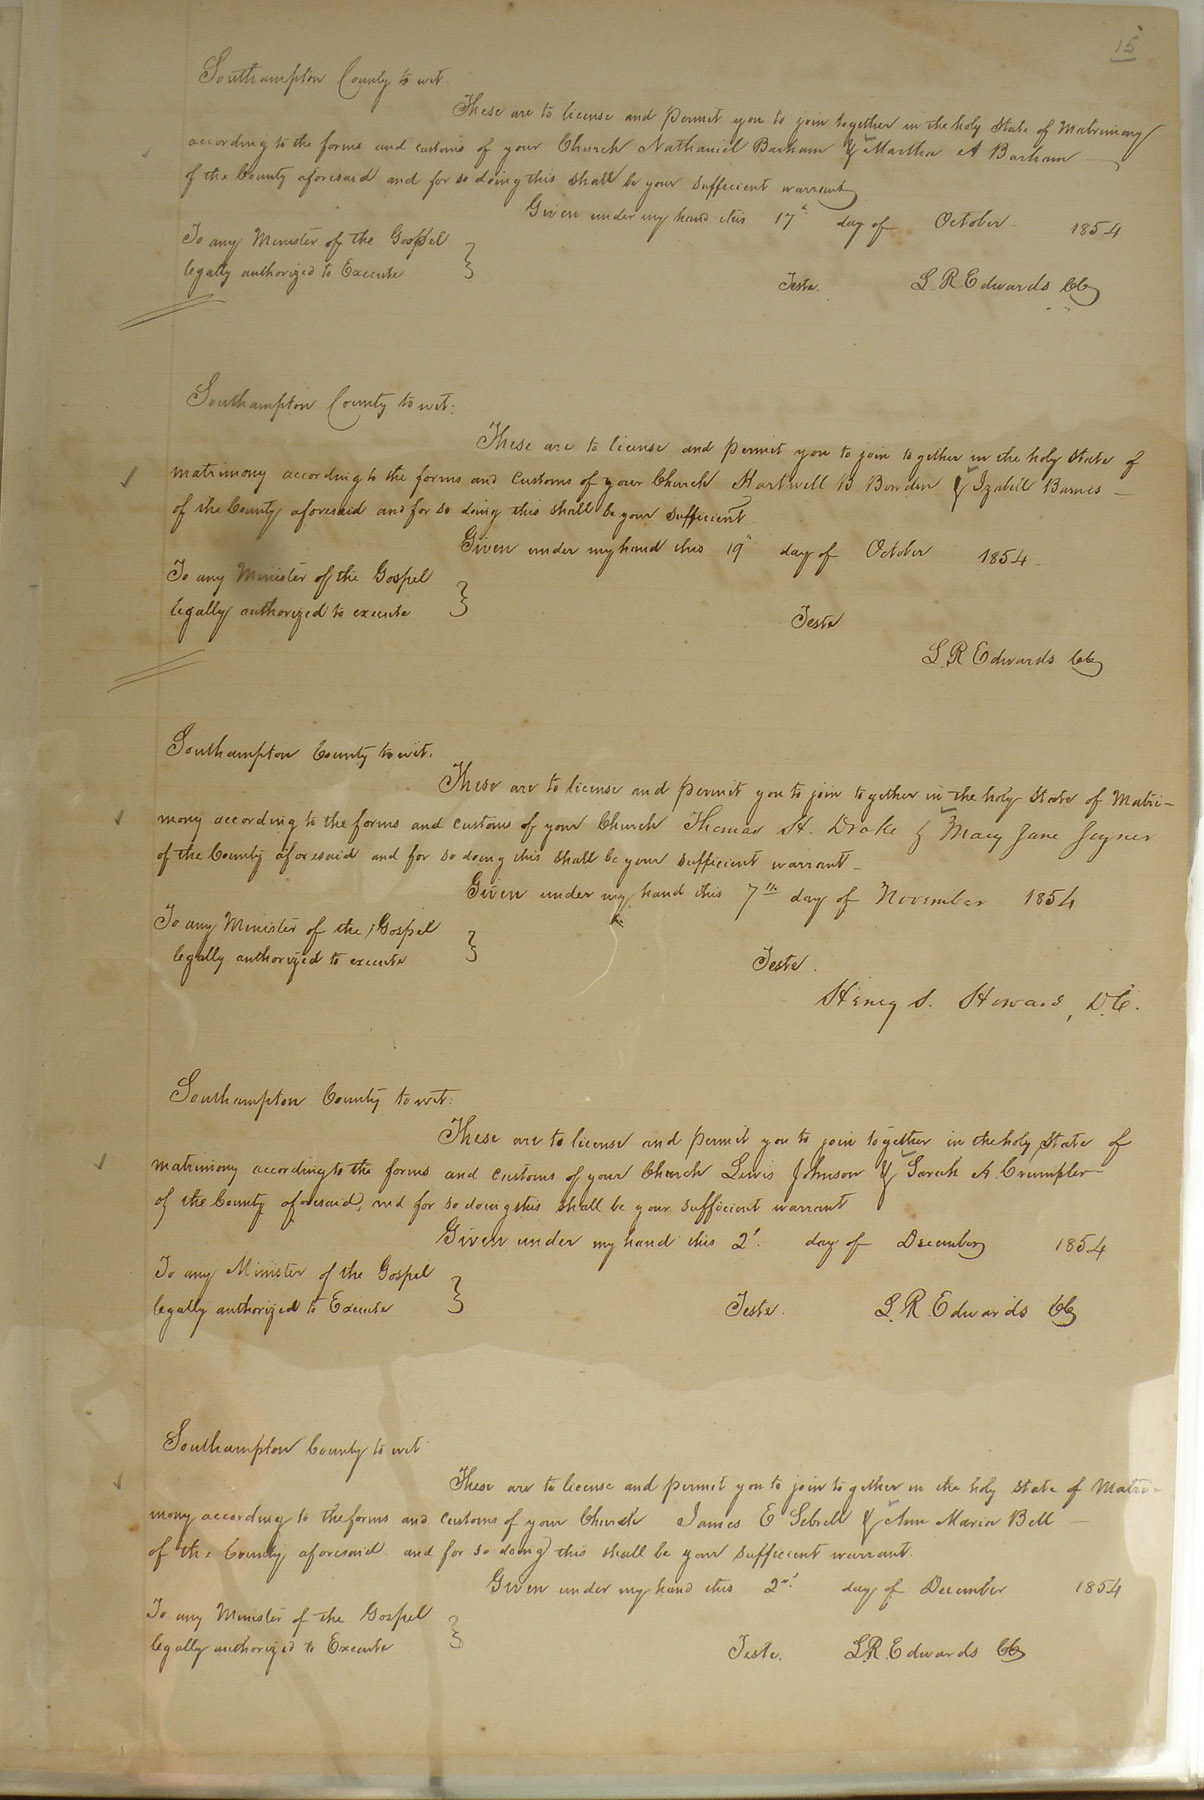 15
Southampton County to wit.
These are to license and permit you to join together in the holy State of Matrimony
according to the forms and customs of your Church Nathaniel Barham & Martha A Barham
of the County aforesaid and for so doing this shall be your sufficient warrant
Given under my hand this 17" day of October 1854
To any Minister of the Gospel
legally authorized to Execute }
Teste. L. R. Edwards CC
Southampton County to wit:
These are to license and permit you to join together in the holy State of
matrimony according to the forms and customs of your Church Hartwell B Bowden & Izabell Barnes
of the County aforesaid and for so doing this shall be your sufficient
Given under my hand this 19" day of October 1854.
To any Minister of the Gospel
legally authorized to execute }
Teste
L. R. Edwards CC
Southampton County to wit.
These are to license and permit you to join together in the holy State of Matri-
mony according to the forms and customs of your Church Thomas H. Drake & Mary Jane Joyner
of the County aforesaid and for so doing this shall be your sufficient warrant
Given under my hand this 7th day of November 1854
To any Minister of the Gospel
legally authorized to execute }
Teste.
Henry S. Howard, D.C.
Southampton County to wit:
These are to license and permit you to join together in the holy State of
matrimony according to the forms and customs of your Church Lewis Johnson & Sarah A. Crumpler
of the County aforesaid, and for so doing this shall be your sufficient warrant
Given under my hand this 2' day of December 1854
To any Minister of the Gospel
legally authorized to Execute }
Teste. L. R. Edwards CC
Southampton County to wit
These are to license and permit you to join together in the holy State of Matri-
mony according to the forms and customs of your Church James E Sebrell & Ann Maria Bell
of the County aforesaid and for so doing this shall be your sufficient warrant.
Given under my hand this 2nd day of December 1854
To any Minister of the Gospel
legally authorized to Execute }
Teste. L. R. Edwards CC